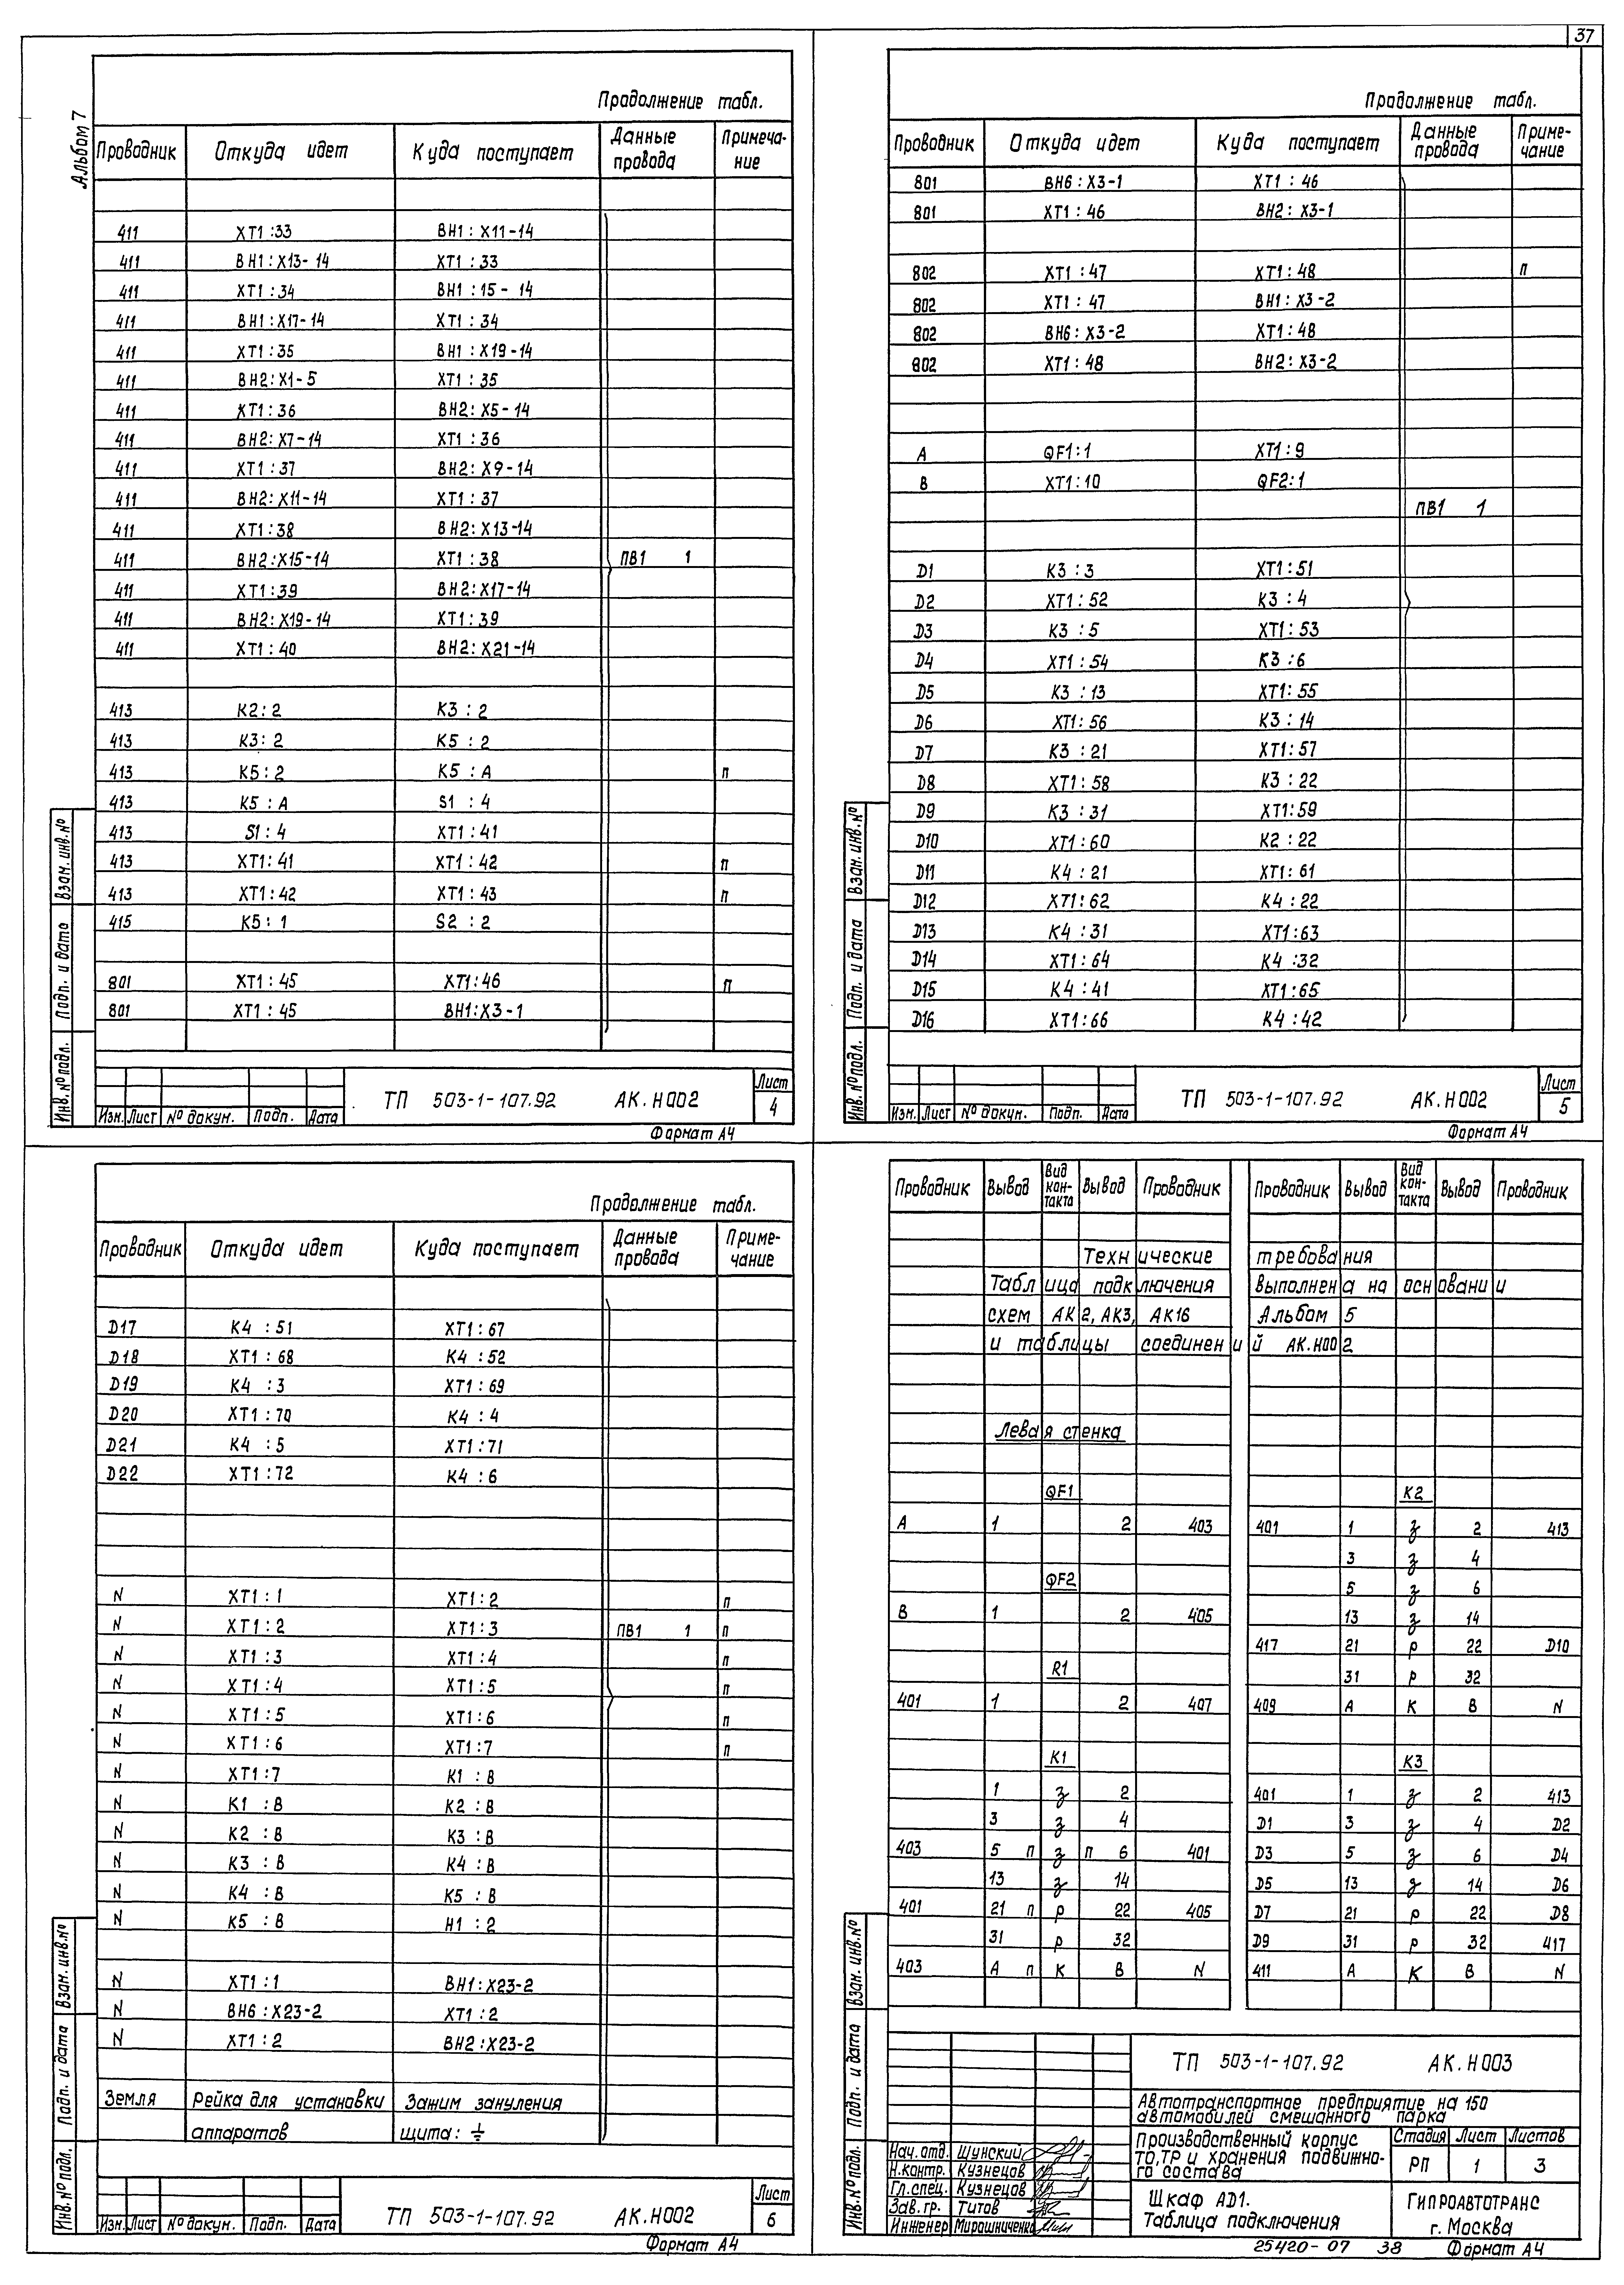 37
Альбом 7
Продолжение табл.
Проводник Откуда идет Куда поступает Данные провода Примеча-ние
411 XT1:33 ВН1:X11-14
411 ВН1:X13-14 XT1:33
411 XT1:34 ВН1:15-14
411 ВН1:X17-14 XT1:34
411 XT1:35 ВН1:X19-14
411 ВН2:X1-5 XT1:35
411 XT1:36 ВН2:X5-14
411 ВН2:X7-14 XT1:36
411 XT1:37 ВН2:X9-14
411 ВН2:X11-14 XT1:37
411 XT1:38 ВН2:X13-14
411 ВН2:X15-14 XT1:38 ПВ1 1
411 XT1:39 ВН2:X17-14
411 ВН2:X19-14 XT1:39
411 XT1:40 ВН2:X21-14
413 K2:2 K3:2
413 K3:2 K5:2
413 K5:2 K5:A п
413 K5:A S1:4
413 S1:4 XT1:41
413 XT1:41 XT1:42 п
413 XT1:42 XT1:43 п
415 K5:1 S2:2
801 XT1:45 XT1:46 п
801 XT1:45 ВН1:X3-1
Инв.№подл. Подп. и дата Взам.инв.№
Изм. Лист № докум. Подп. Дата
ТП 503-1-107.92 АК.Н002
Лист 4
Формат А4
Продолжение табл.
Проводник Откуда идет Куда поступает Данные провода Приме-чание
801 ВН6:X3-1 XT1:46
801 XT1:46 ВН2:X3-1
802 XT1:47 XT1:48 п
802 XT1:47 ВН1:X3-2
802 ВН6:X3-2 XT1:48
802 XT1:48 ВН2:X3-2
A QF1:1 XT1:9
B XT1:10 QF2:1
ПВ1 1
D1 K3:3 XT1:51
D2 XT1:52 K3:4
D3 K3:5 XT1:53
D4 XT1:54 K3:6
D5 K3:13 XT1:55
D6 XT1:56 K3:14
D7 K3:21 XT1:57
D8 XT1:58 K3:22
D9 K3:31 XT1:59
D10 XT1:60 K2:22
D11 K4:21 XT1:61
D12 XT1:62 K4:22
D13 K4:31 XT1:63
D14 XT1:64 K4:32
D15 K4:41 XT1:65
D16 XT1:66 K4:42
Инв.№подл. Подп. и дата Взам.инв.№
Изм. Лист № докум. Подп. Дата
ТП 503-1-107.92 АК.Н002
Лист 5
Формат А4
Продолжение табл.
Проводник Откуда идет Куда поступает Данные провода Приме-чание
D17 K4:51 XT1:67
D18 XT1:68 K4:52
D19 K4:3 XT1:69
D20 XT1:70 K4:4
D21 K4:5 XT1:71
D22 XT1:72 K4:6
N XT1:1 XT1:2 п
N XT1:2 XT1:3 ПВ1 1 п
N XT1:3 XT1:4 п
N XT1:4 XT1:5 п
N XT1:5 XT1:6 п
N XT1:6 XT1:7 п
N XT1:7 K1:B
N K1:B K2:B
N K2:B K3:B
N K3:B K4:B
N K4:B K5:B
N K5:B H1:2
N XT1:1 ВН1:X23-2
N ВН6:X23-2 XT1:2
N XT1:2 ВН2:X23-2
Земля Рейка для установки Зажим зануления
аппаратов щита:
Инв.№подл. Подп. и дата Взам.инв.№
Изм. Лист № докум. Подп. Дата
ТП 503-1-107.92 АК.Н002
Лист 6
Формат А4
Проводник Вывод Вид кон-такта Вывод Проводник Проводник Вывод Вид кон-такта Вывод Проводник
Технические требования
Таблица подключения выполнена на основании
схем АК2, АК3, АК16 Альбом 5
и таблицы соединений АК.Н002
Левая стенка
QF1 K2
A 1 2 403 401 1 з 2 413
3 з 4
QF2 5 з 6
B 1 2 405 13 з 14
417 21 р 22 D10
R1 31 р 32
401 1 2 407 409 A К B N
K1 K3
1 з 2 401 1 з 2 413
3 з 4 D1 3 з 4 D2
403 5 п з п 6 401 D3 5 з 6 D4
13 з 14 D5 13 з 14 D6
401 21 п р 22 405 D7 21 р 22 D8
31 р 32 D9 31 р 32 417
403 A п К B N 411 A К B N
Инв.№подл. Подп. и дата Взам.инв.№
ТП 503-1-107.92 АК.Н003
Автотранспортное предприятие на 150
автомобилей смешанного парка
Нач.отд. Шунский
Н.контр. Кузнецов
Гл.спец. Кузнецов
Зав.гр. Титов
Инженер Мирошниченко
Производственный корпус
ТО,ТР и хранения подвижно-
го состава
Стадия Лист Листов
РП 1 3
Шкаф АД1.
Таблица подключения
ГИПРОАВТОТРАНС
г. Москва
25420-07 38 Формат А4